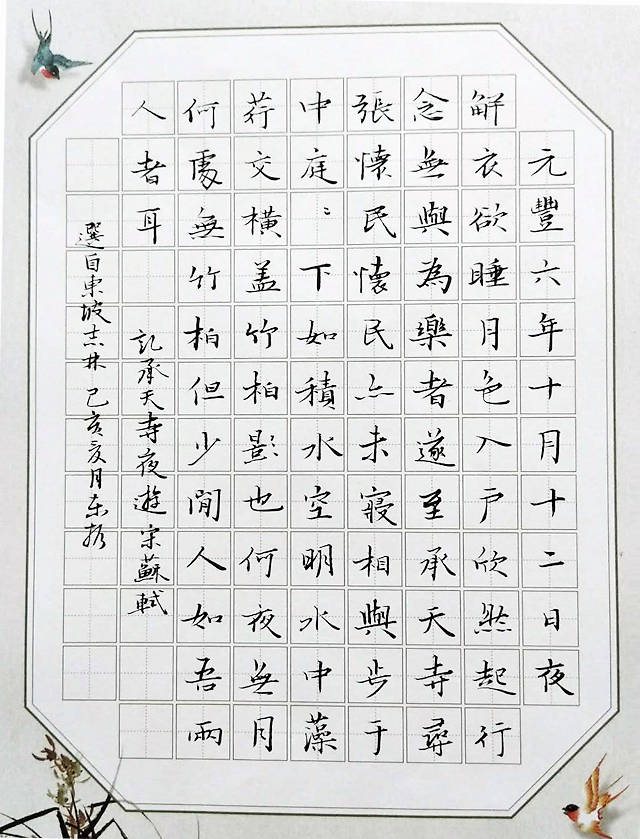 元豐六年十月十二日夜
解衣欲睡月色入户欣然起行
念無與為樂者遂至承天寺尋
張懷民懷民亦未寢相與步于
中庭〻下如積水空明水中藻
荇交橫盖竹柏影也何夜無月
何處無竹柏但少閒人如吾兩
人者耳 記承天寺夜遊 宋蘇軾
選自東坡志林 己亥夏月